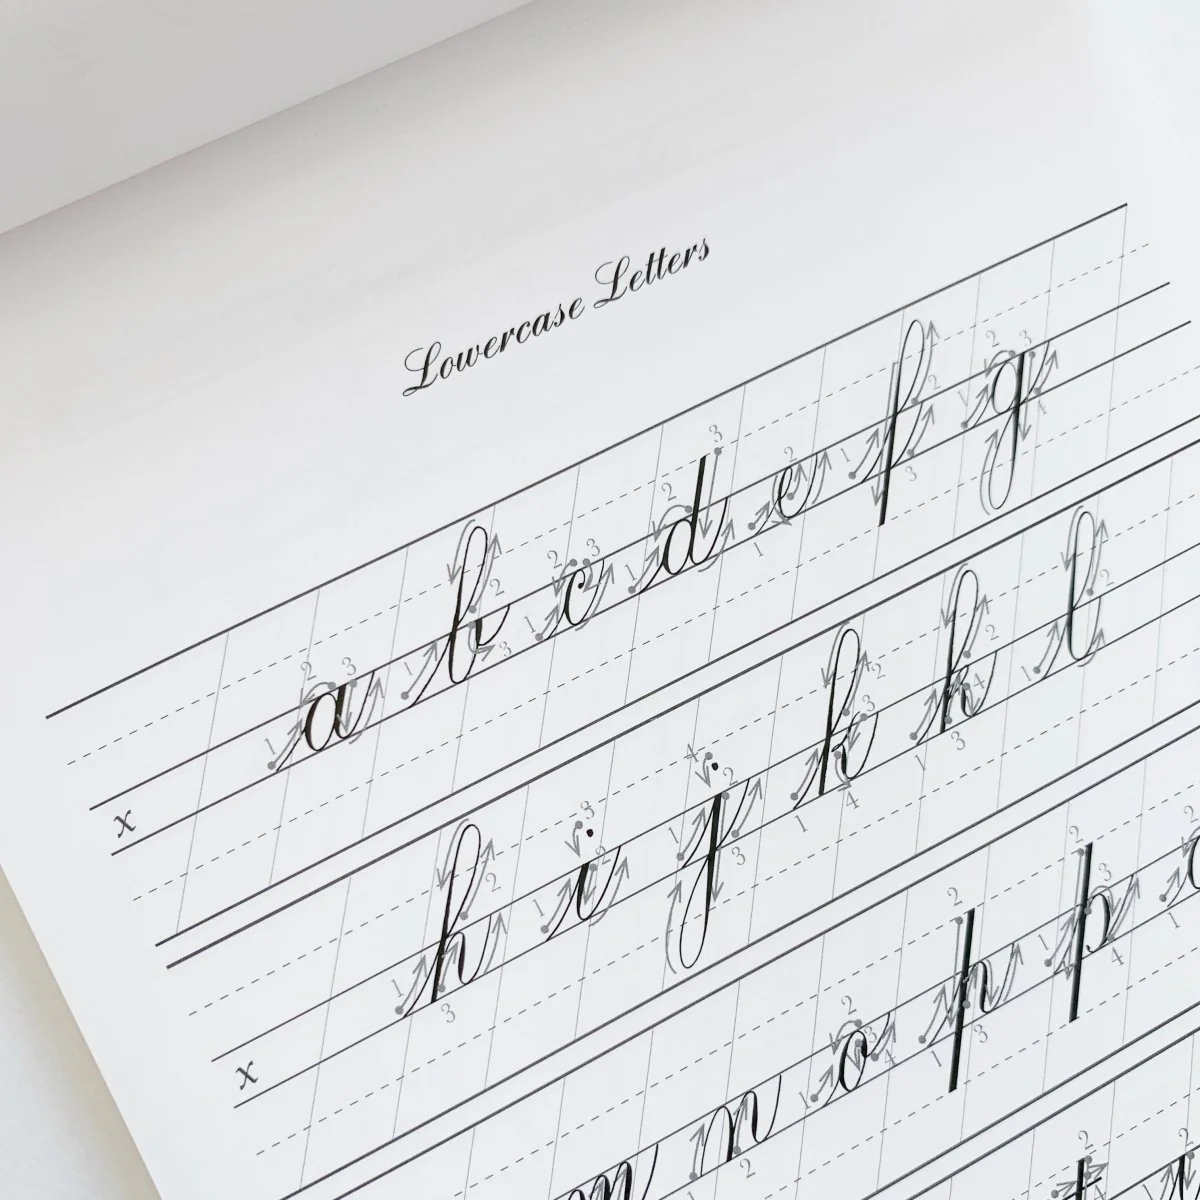 Lowercase Letters
x a b c d e f g
x h i j k k l
m n o p p
t